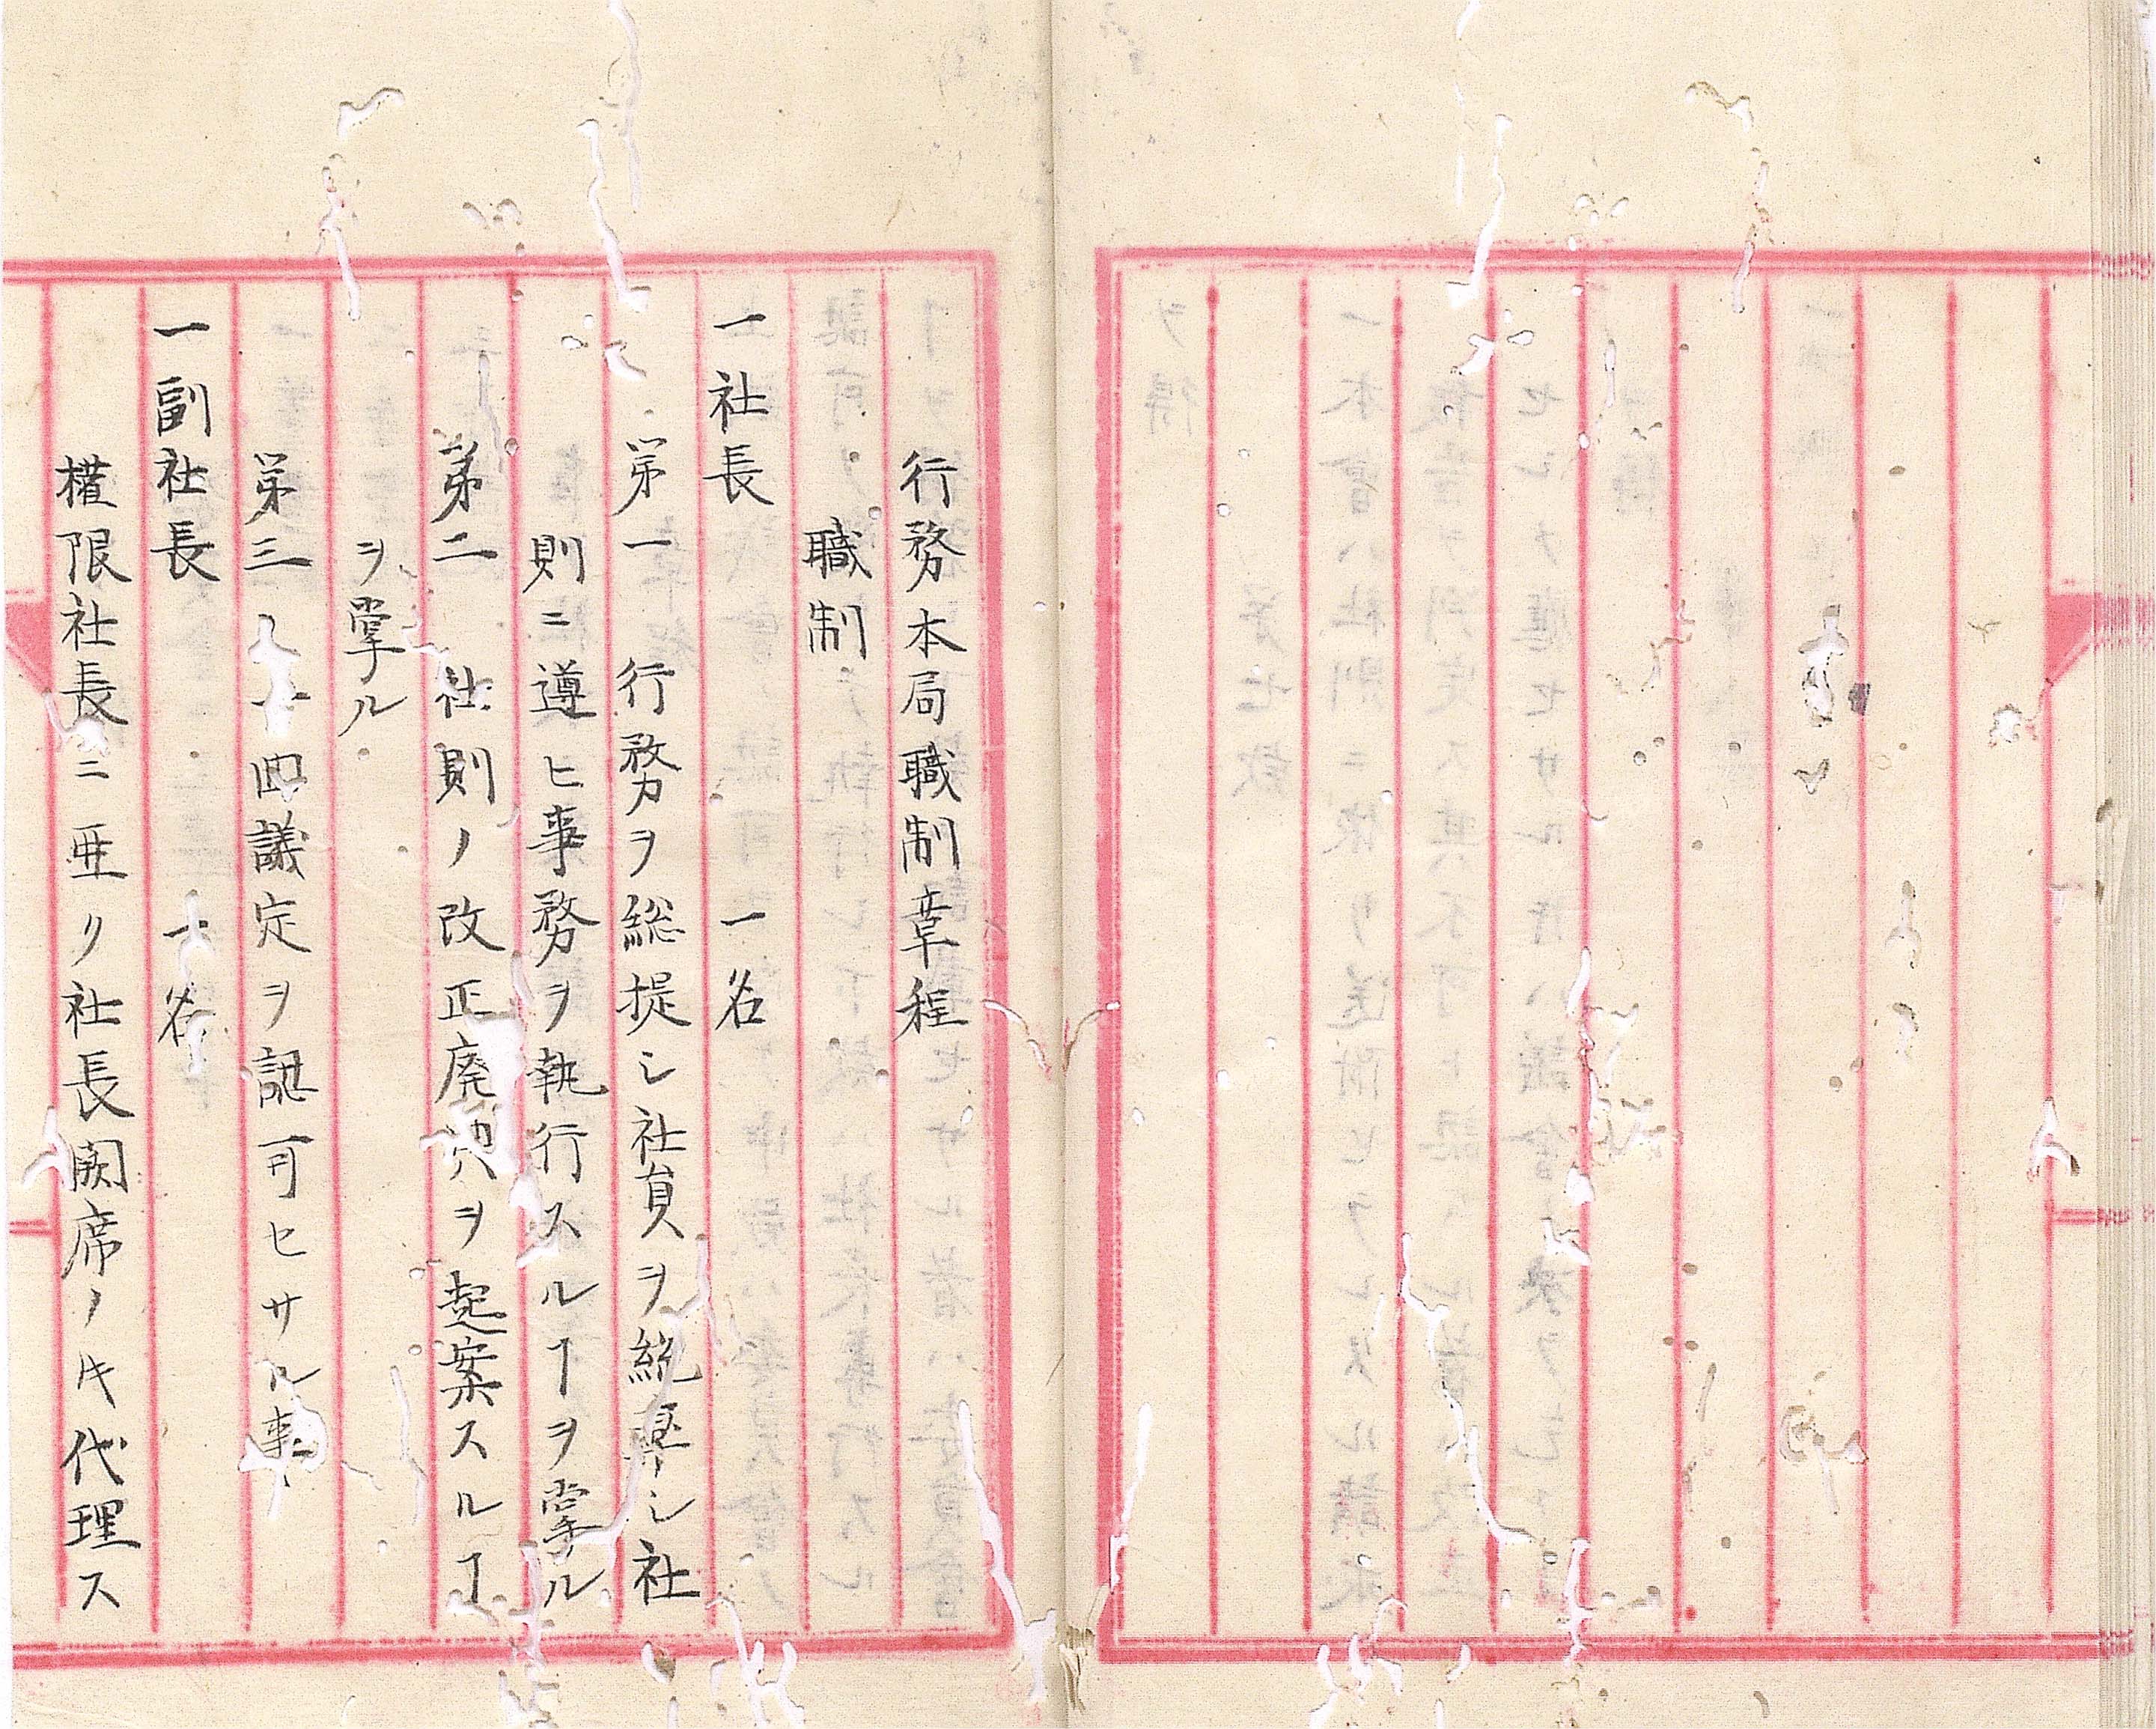 行務本局職制章程
職制
一社長　一名
第一　行務ヲ総提シ社員ヲ統率シ社
則ニ遵ヒ事務ヲ執行スルヿヲ掌ル
第二　社則ノ改正廃ヲ起案スルヿ
ヲ掌ル
第三　議定ヲ認可セサル事
一副社長　一名
権限社長ニ亜リ社長闕席ノトキ代理ス